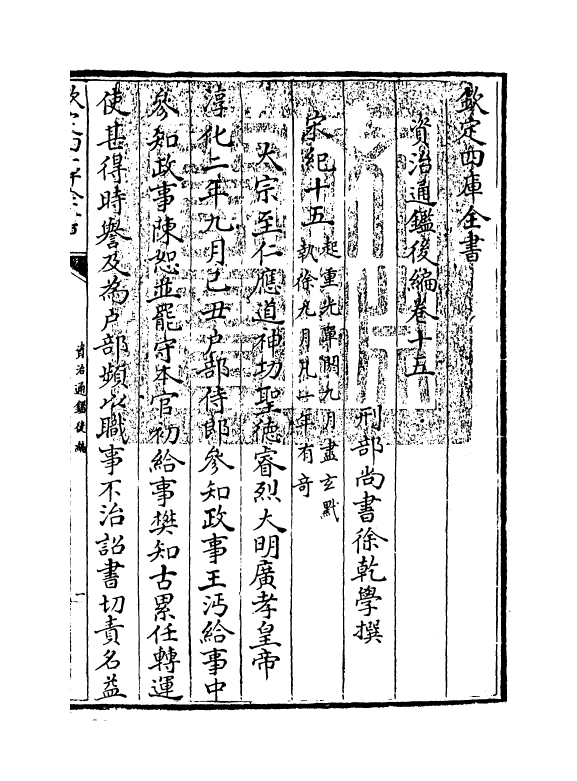 欽定四庫全書
資治通鑑後編卷十五
刑部尚書徐乾學撰
宋紀十五起重光單閼九月盡玄黓
執徐九月凡一年有奇
太宗至仁應道神功聖德睿烈大明廣孝皇帝
淳化二年九月己丑户部侍郎參知政事王沔給事中
參知政事陳恕並罷守本官初給事樊知古累任轉運
使甚得時譽及為户部頻以職事不治詔書切責名益
欽定四庫全書
資治通鑑後編
一